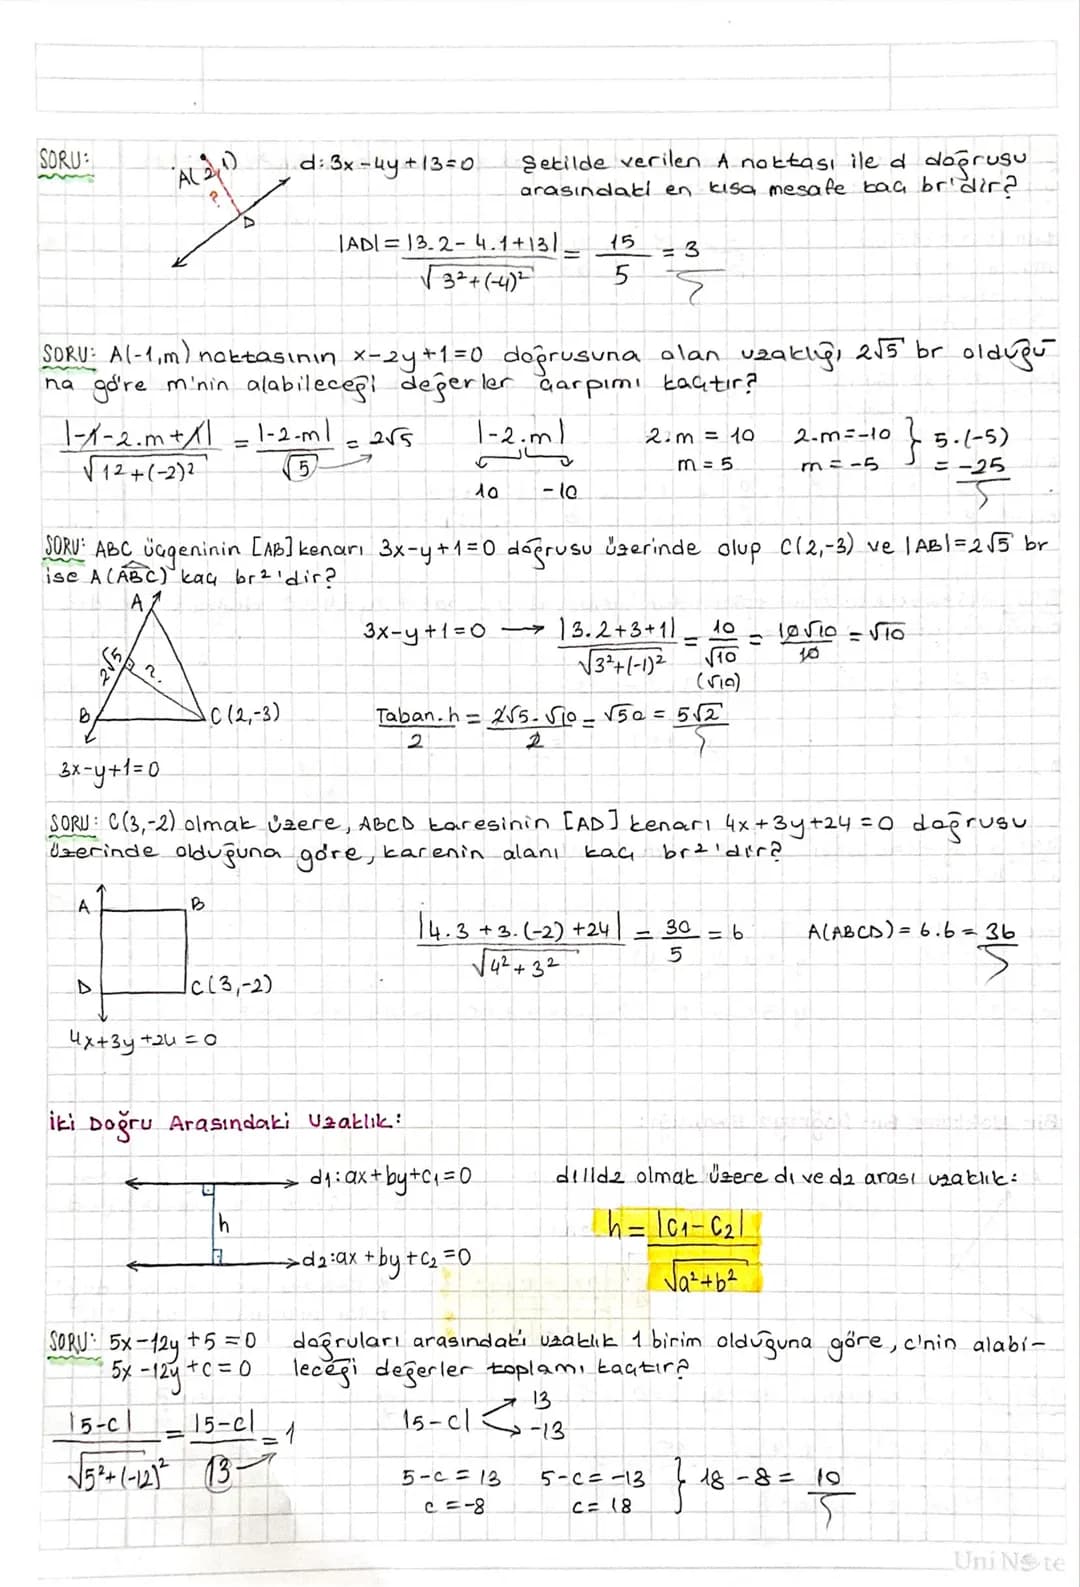 SORU:
A(2,1)
d: 3x-4y+13=0
Şekilde verilen A noktası ile d doğrusu
arasındaki en kısa mesafe kaç br'dir?
?
D
|AD| = |3.2-4.1+13| / √3²+(-4)² = 15/5 = 3
SORU: A(-1,m) noktasının x-2y+1=0 doğrusuna olan uzaklığı 2√5 br olduğu
na göre m'nin alabileceği değerler çarpımı kaçtır?
|-1-2.m+1| / √12+(-2)2 = |-2.m| / √5 = 2√5
|-2.m|
10 -10
2.m = 10
m = 5
2.m=-10
m = -5
} 5.(-5)
= -25
SORU: ABC üçgeninin [AB] kenarı 3x-y+1=0 doğrusu üzerinde olup C(2,-3) ve |AB|=2√5 br
ise A(ABC) kaç br2'dir?
A
2√5
?
B
C(2,-3)
3x-y+1=0
3x-y+1=0 → |3.2+3+1| / √3²+(-1)² = 10/√10 = 10√10/10 = √10
(√10)
Taban.h/2 = 2√5.√10/2 = √50 = 5√2
SORU: C(3,-2) olmak üzere, ABCD karesinin [AD] kenarı 4x+3y+24=0 doğrusu
üzerinde olduğuna göre, karenin alanı kaç br2'dir?
A B
D C(3,-2)
4x+3y+24=0
|4.3+3.(-2)+24| / √4²+3² = 30/5 = 6
A(ABCD) = 6.6 = 36
İki Doğru Arasındaki Uzaklık:
d1: ax+by+c1=0
h
d2: ax+by+c2=0
d1//d2 olmak üzere d1 ve d2 arası uzaklık:
h = |c1-c2| / √a²+b²
SORU: 5x-12y+5=0 doğruları arasındaki uzaklık 1 birim olduğuna göre, c'nin alabi-
5x-12y+c=0 leceği değerler toplamı kaçtır?
|5-c| / √5²+(-12)² = |5-c| / 13 = 1
|5-c| 13
-13
5-c = 13
c = -8
5-c = -13
c = 18
} 18-8 = 10
UniNote